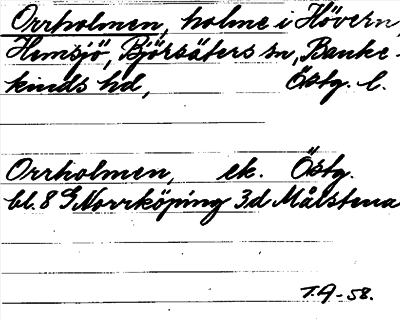 Orrholmen, holme i Hövern,
Hemsjö, Björsäters sn, Banke-
kinds hd, Östg. l.
Orrholmen, ek. Östg.
bl. 8 G Norrköping 3d Målstena
T.A-58.